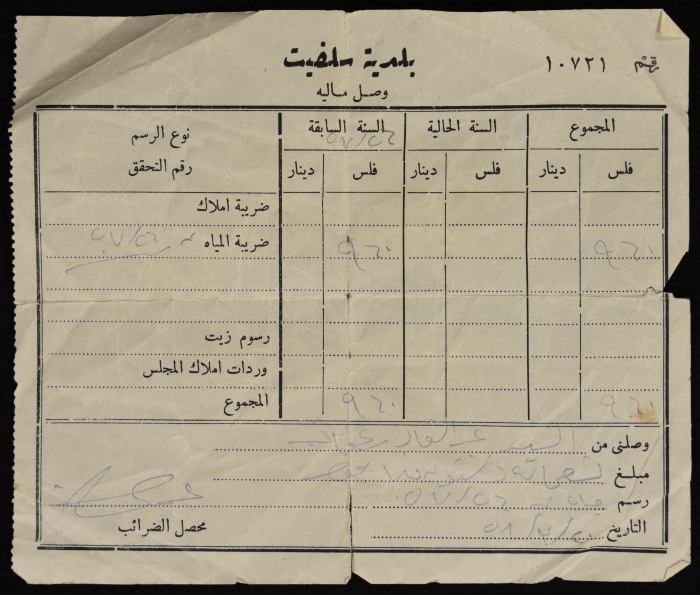 بلدية سلفيت
رقم ١٠٧٢١
وصل ماليه
نوع الرسم
رقم التحقق
السنة السابقة
٥٧/٥٦
السنة الحالية
المجموع
دينار فلس دينار فلس دينار فلس
ضريبة املاك
ضريبة المياه ٥٧/٥٦ ٩٦٠ ٩٦٠
رسوم زيت
وردات املاك المجلس
المجموع ٩٦٠ ٩٦٠
وصلني من السيد عبد القادر
مبلغ تسعمائة وستون فلسا فقط
رسم مياه ٥٧/٥٦
التاريخ
محصل الضرائب